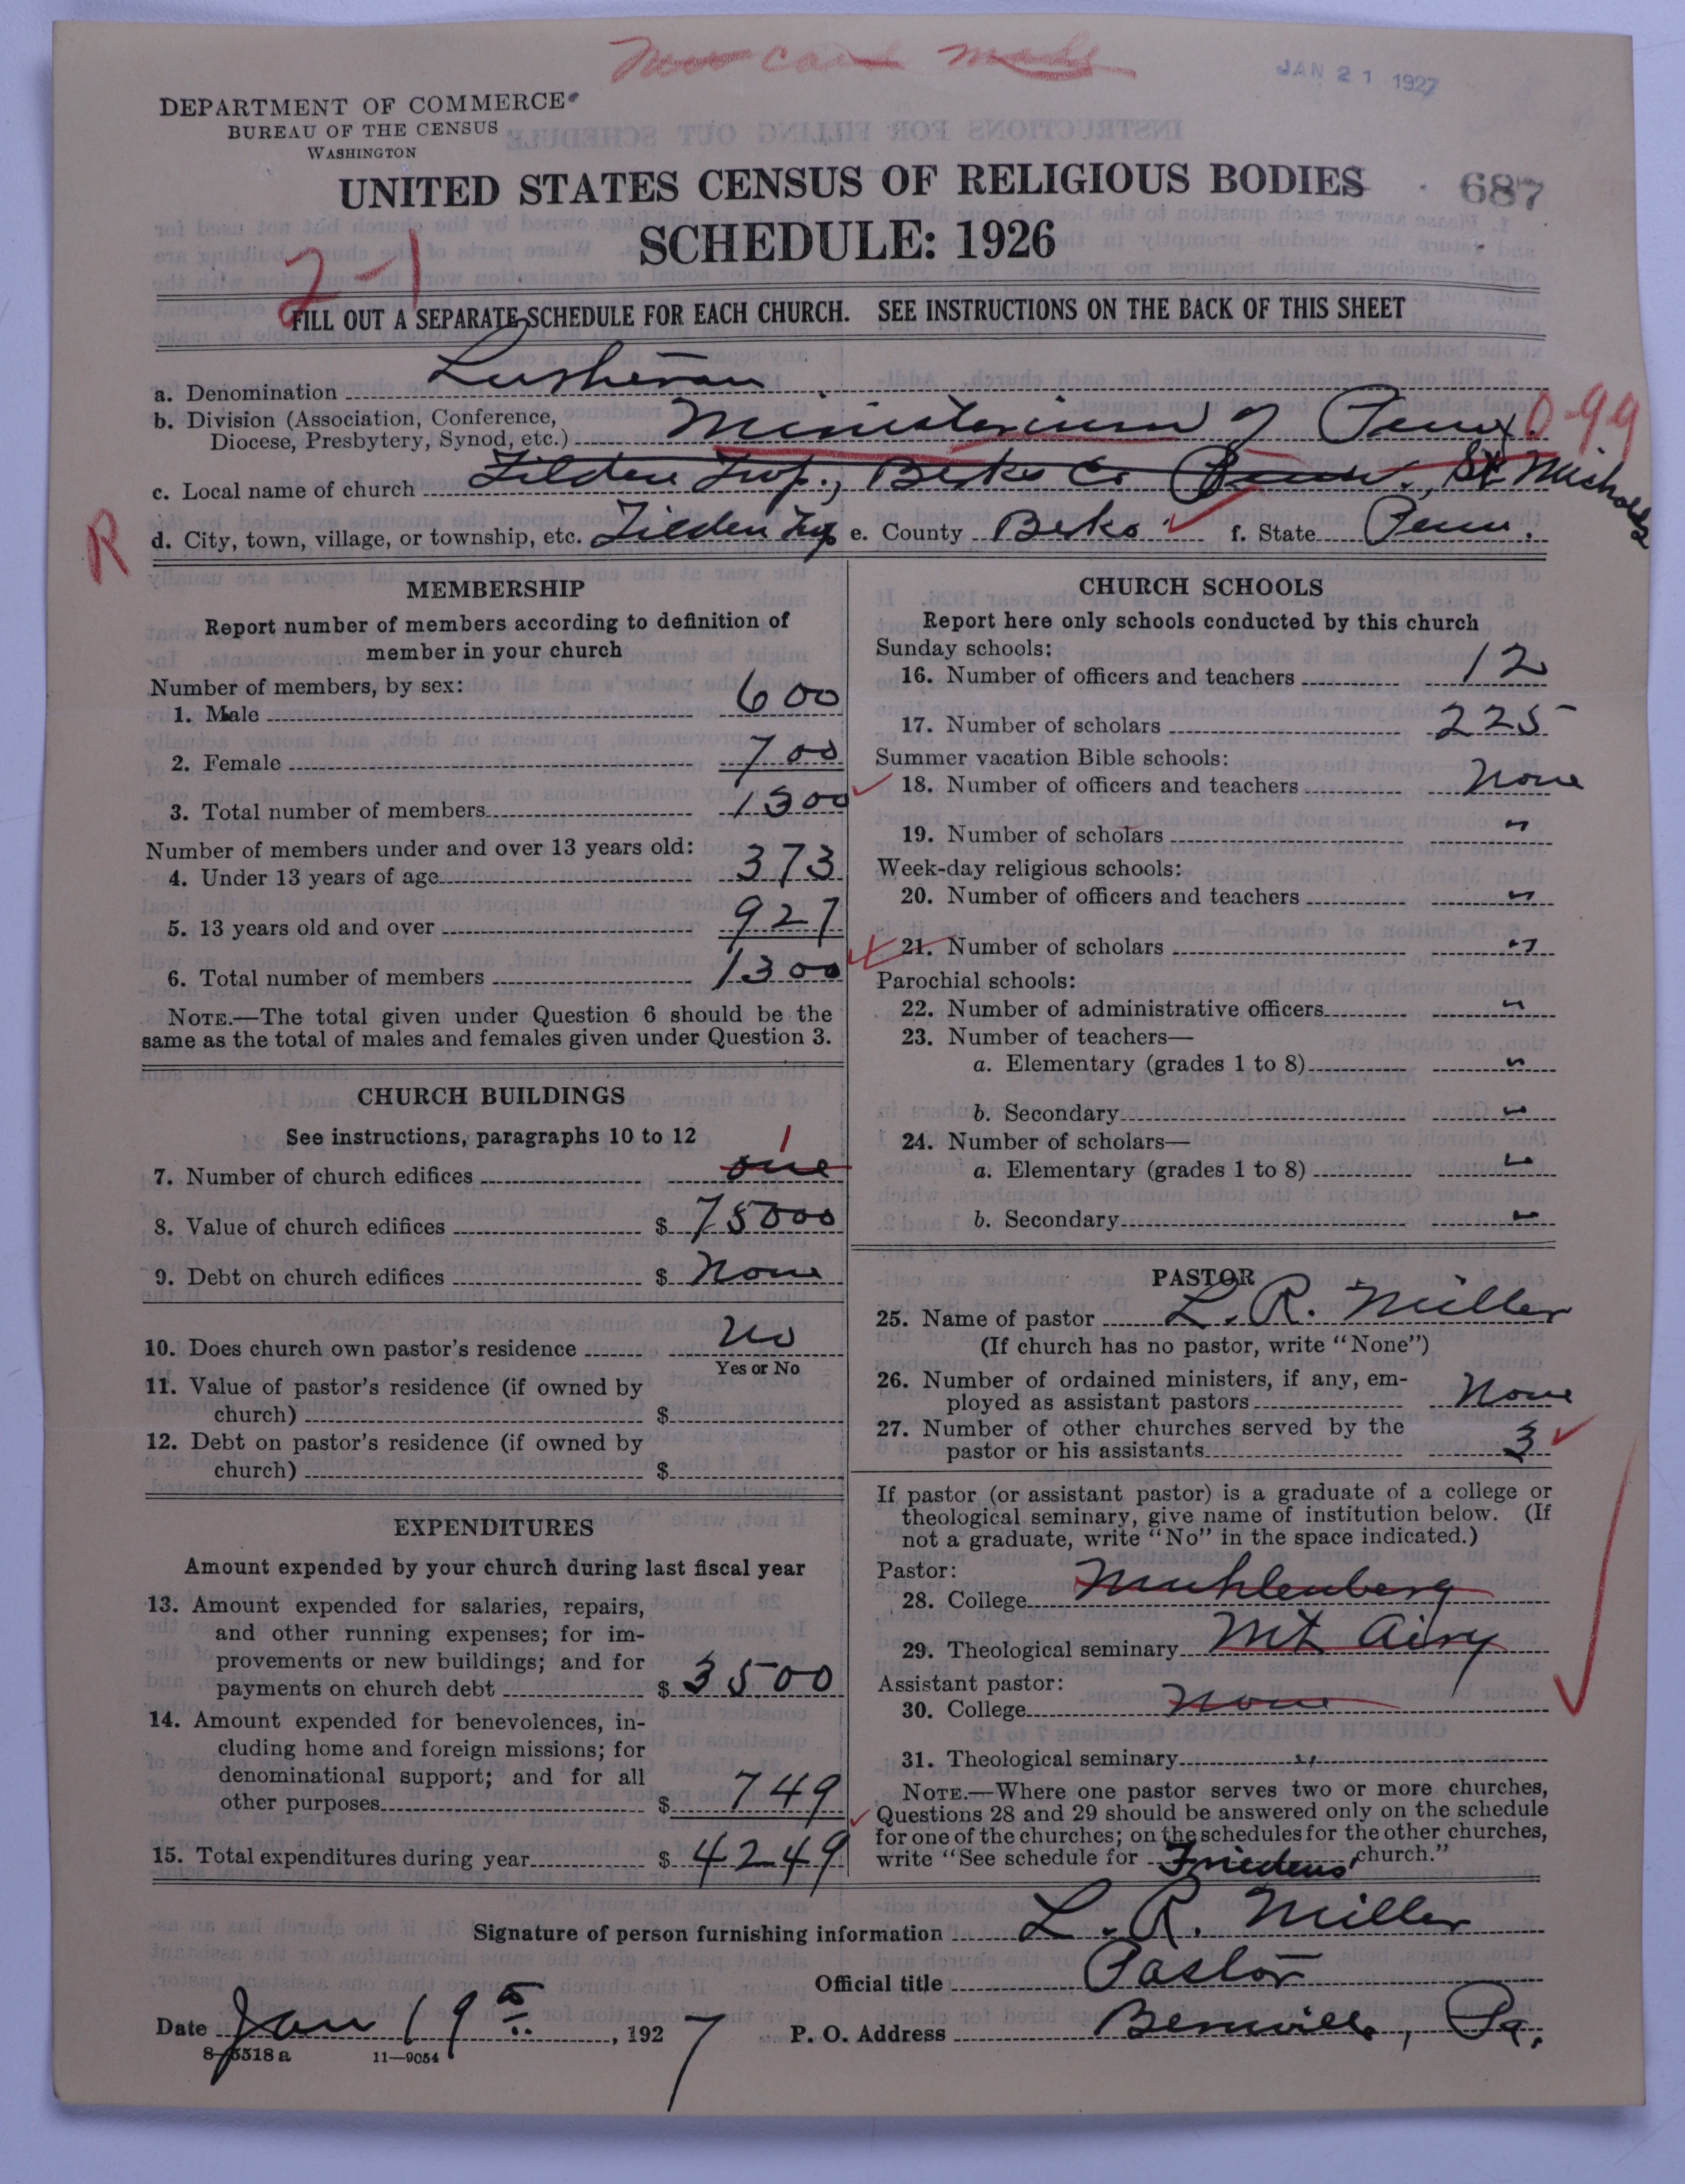 JAN 21 1927
DEPARTMENT OF COMMERCE
BUREAU OF THE CENSUS
WASHINGTON
UNITED STATES CENSUS OF RELIGIOUS BODIES
687
SCHEDULE: 1926
2-1
FILL OUT A SEPARATE SCHEDULE FOR EACH CHURCH. SEE INSTRUCTIONS ON THE BACK OF THIS SHEET
a. Denomination Lutheran
b. Division (Association, Conference,
Diocese, Presbytery, Synod, etc.) Ministerium of Penn. 0-99
c. Local name of church Tilden Twp., Berks Co Penn., St Michaels
R
d. City, town, village, or township, etc. Tilden Twp e. County Berks f. State Penn.
MEMBERSHIP
Report number of members according to definition of
member in your church
Number of members, by sex:
1. Male 600
2. Female 700
3. Total number of members 1300
Number of members under and over 13 years old:
4. Under 13 years of age 373
5. 13 years old and over 927
6. Total number of members 1300
NOTE.—The total given under Question 6 should be the
same as the total of males and females given under Question 3.
CHURCH BUILDINGS
See instructions, paragraphs 10 to 12
1
7. Number of church edifices one
8. Value of church edifices $ 75000
9. Debt on church edifices $ None
10. Does church own pastor's residence No
Yes or No
11. Value of pastor's residence (if owned by
church) $
12. Debt on pastor's residence (if owned by
church) $
EXPENDITURES
Amount expended by your church during last fiscal year
13. Amount expended for salaries, repairs,
and other running expenses; for im-
provements or new buildings; and for
payments on church debt $ 3500
14. Amount expended for benevolences, in-
cluding home and foreign missions; for
denominational support; and for all
other purposes $ 749
15. Total expenditures during year $ 4249
CHURCH SCHOOLS
Report here only schools conducted by this church
Sunday schools:
16. Number of officers and teachers 12
17. Number of scholars 225
Summer vacation Bible schools:
18. Number of officers and teachers None
19. Number of scholars "
Week-day religious schools:
20. Number of officers and teachers "
21. Number of scholars "
Parochial schools:
22. Number of administrative officers "
23. Number of teachers—
a. Elementary (grades 1 to 8) "
b. Secondary "
24. Number of scholars—
a. Elementary (grades 1 to 8) "
b. Secondary "
PASTOR
25. Name of pastor L. R. Miller
(If church has no pastor, write "None")
26. Number of ordained ministers, if any, em-
ployed as assistant pastors None
27. Number of other churches served by the
pastor or his assistants 3
If pastor (or assistant pastor) is a graduate of a college or
theological seminary, give name of institution below. (If
not a graduate, write "No" in the space indicated.)
Pastor:
28. College Muhlenberg
29. Theological seminary Mt Airy
Assistant pastor:
30. College None
31. Theological seminary "
NOTE.—Where one pastor serves two or more churches,
Questions 28 and 29 should be answered only on the schedule
for one of the churches; on the schedules for the other churches,
write "See schedule for Friedens church."
Signature of person furnishing information L. R. Miller
Official title Pastor
Date Jan 19, 1927 P. O. Address Bernville, Pa.
8-5518 a 11—9054